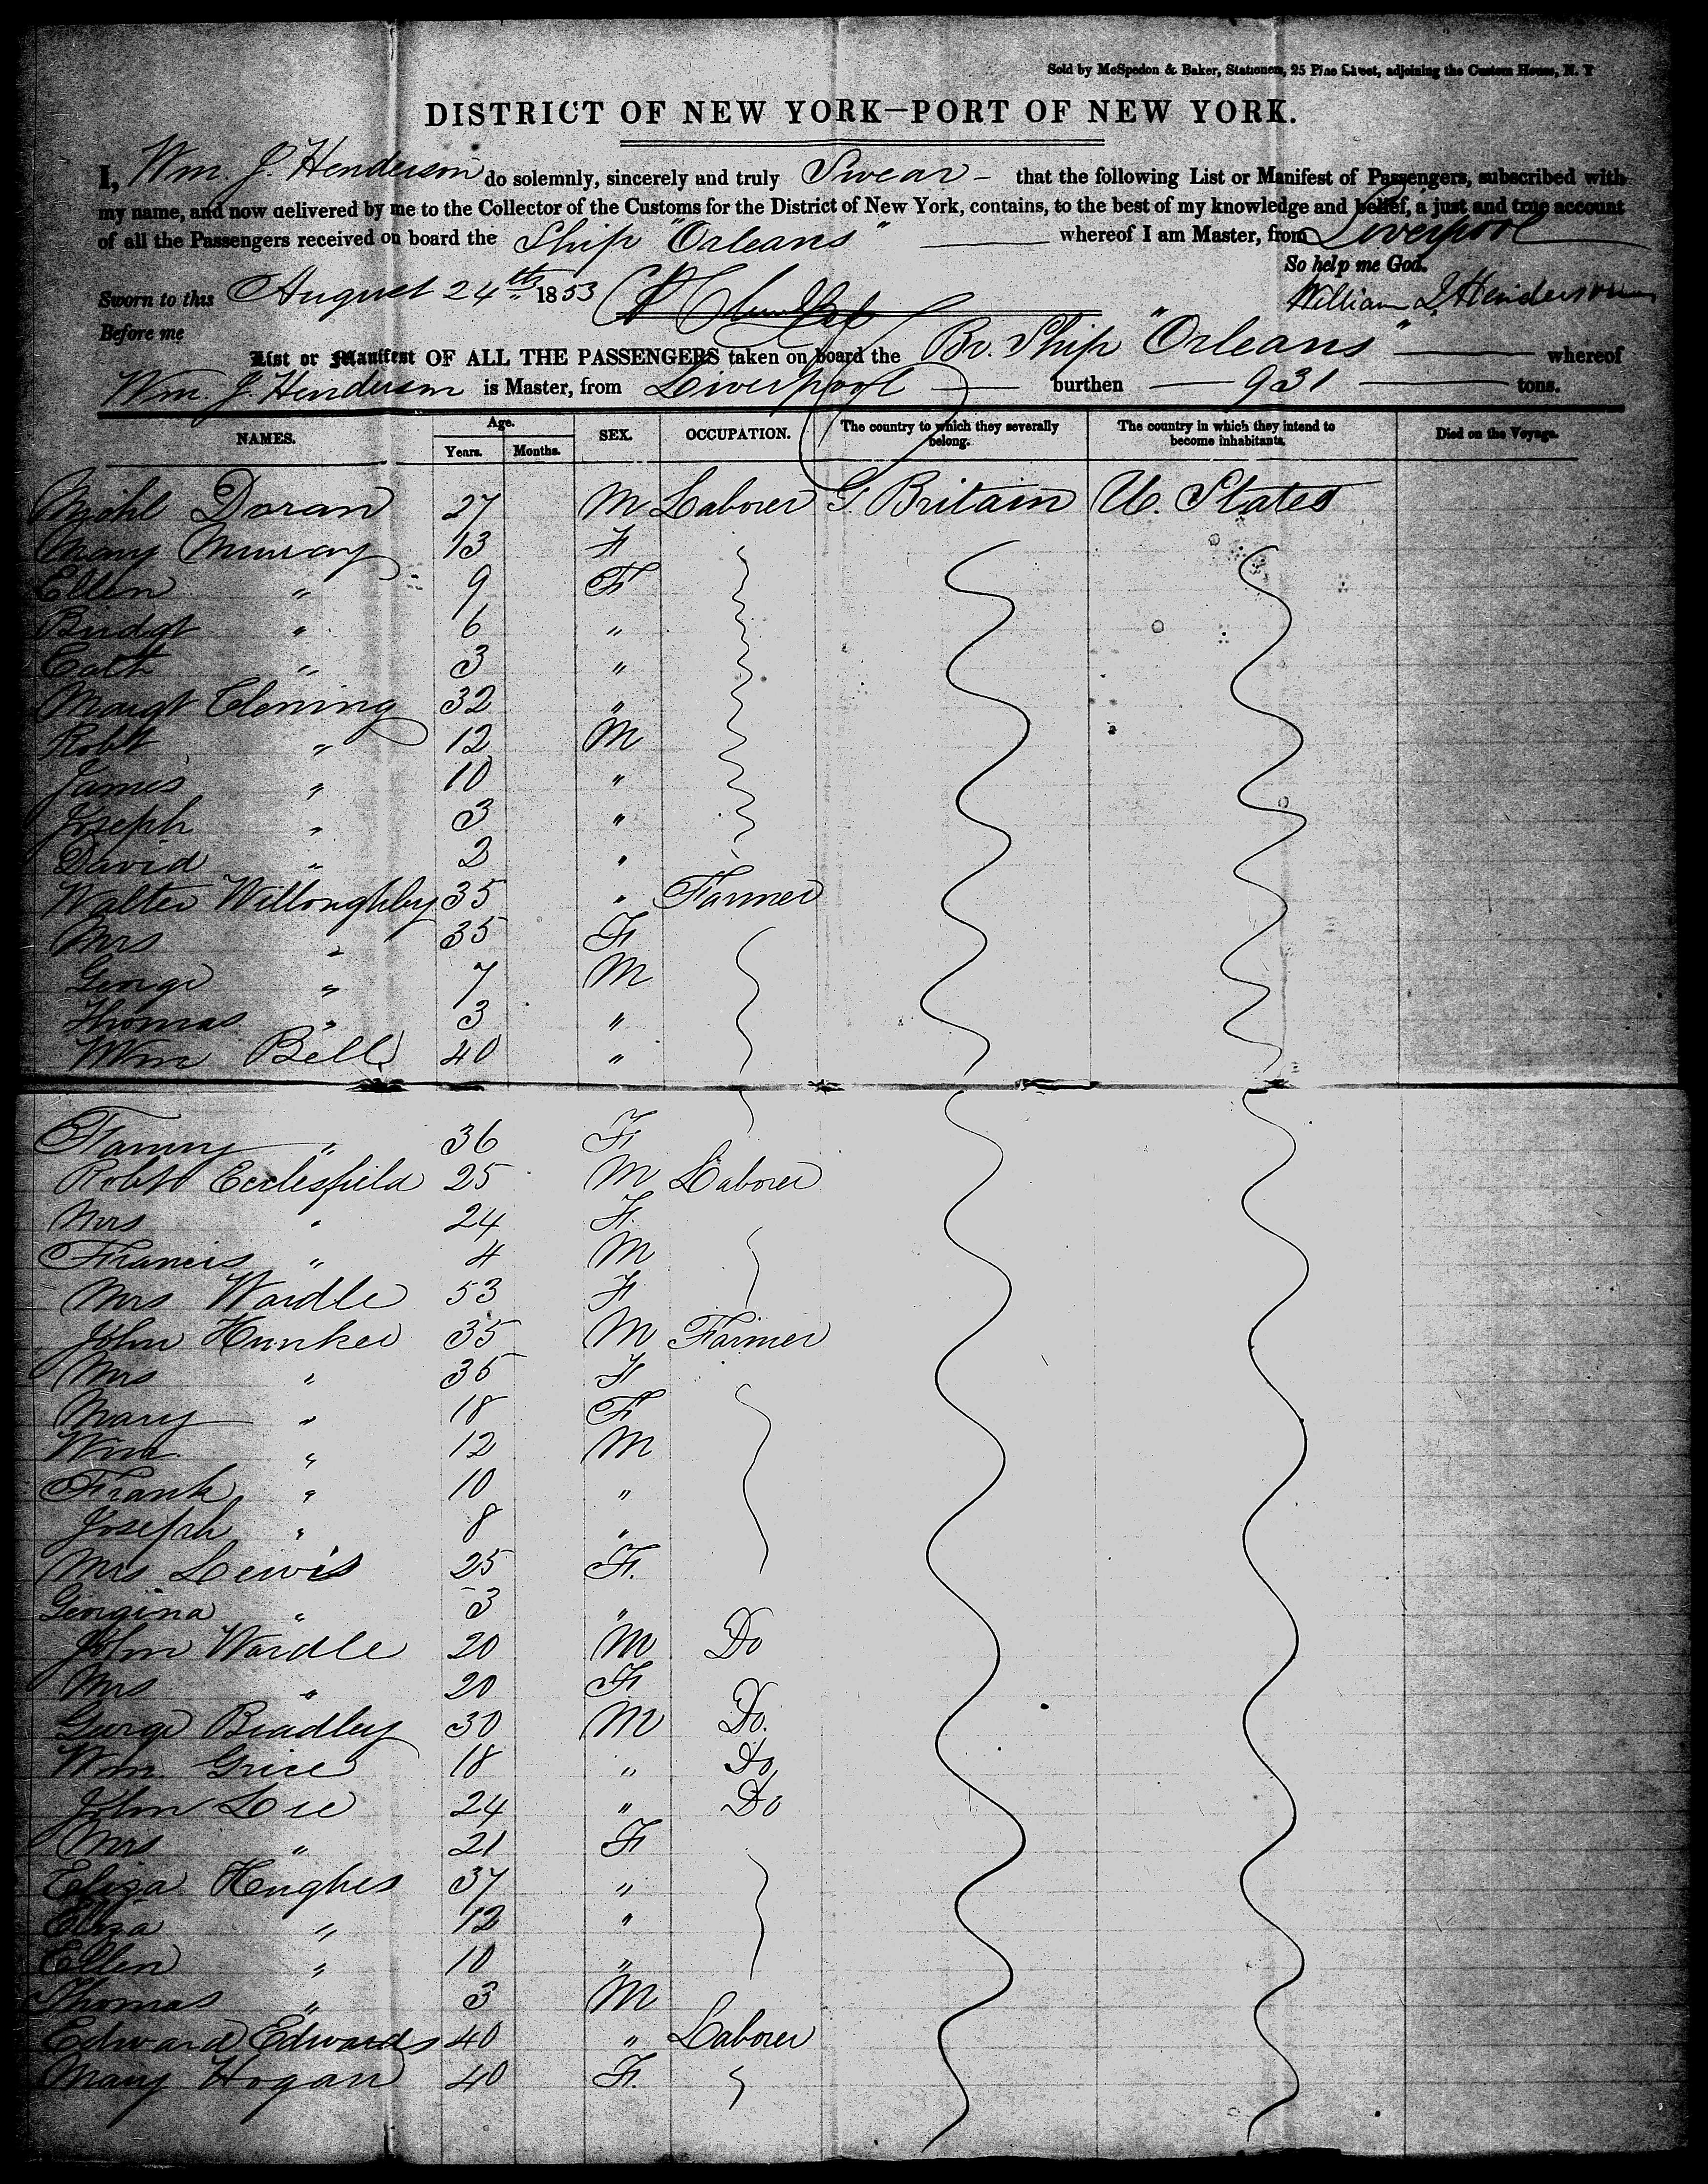 Sold by McSpedon & Baker, Stationers, 25 Pine Street, adjoining the Custom House, N. Y
DISTRICT OF NEW YORK—PORT OF NEW YORK.
I, Wm. J. Henderson do solemnly, sincerely and truly Swear - that the following List or Manifest of Passengers, subscribed with
my name, and now delivered by me to the Collector of the Customs for the District of New York, contains, to the best of my knowledge and belief, a just and true account
of all the Passengers received on board the Ship "Orleans" whereof I am Master, from Liverpool
So help me God.
Sworn to this August 24th 1853 William J Henderson
Before me
List or Manifest OF ALL THE PASSENGERS taken on board the Br. Ship "Orleans" whereof
Wm. J. Henderson is Master, from Liverpool burthen 931 tons.
NAMES. Age. Years. Months. SEX. OCCUPATION. The country to which they severally belong. The country in which they intend to become inhabitants. Died on the Voyage.
Michl Doran 27 M Laborer G Britain U. States
Mary Murray 13 F
Ellen " 9 F
Bridgt " 6 "
Cath " 3 "
Margt Fleming 32 "
Robt " 12 M
James " 10 "
Joseph " 3 "
David " 2 "
Walter Willoughby 35 " Farmer
Mrs " 35 F
George " 7 M
Thomas " 3 "
Wm Bell 40 "
Fanny " 36 F
Robt Ecclesfield 25 M Laborer
Mrs " 24 F.
Francis " 4 M
Mrs Wardle 53 F
John Hunker 35 M Farmer
Mrs " 35 F
Mary " 18 F
Wm. " 12 M
Frank " 10 "
Joseph " 8 "
Mrs Lewis 25 F.
Georgina " 3 "
John Wardle 20 M Do
Mrs " 20 F
George Bradley 30 M Do.
Wm. Grice 18 " Do
John Lee 24 " Do
Mrs " 21 F
Eliza Hughes 37 "
Eliza " 12 "
Ellen " 10 "
Thomas " 3 M
Edward Edwards 40 " Laborer
Mary Hogan 40 F.